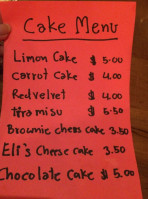 Cake Menu
Limon Cake $ 5.00
Carrot Cake $ 4.00
Redvelvet $ 4.00
Tira misu $ 5.50
Brownie chees cake 3.50
Eli's Cheese cake 3.50
Chocolate Cake $ 5.00